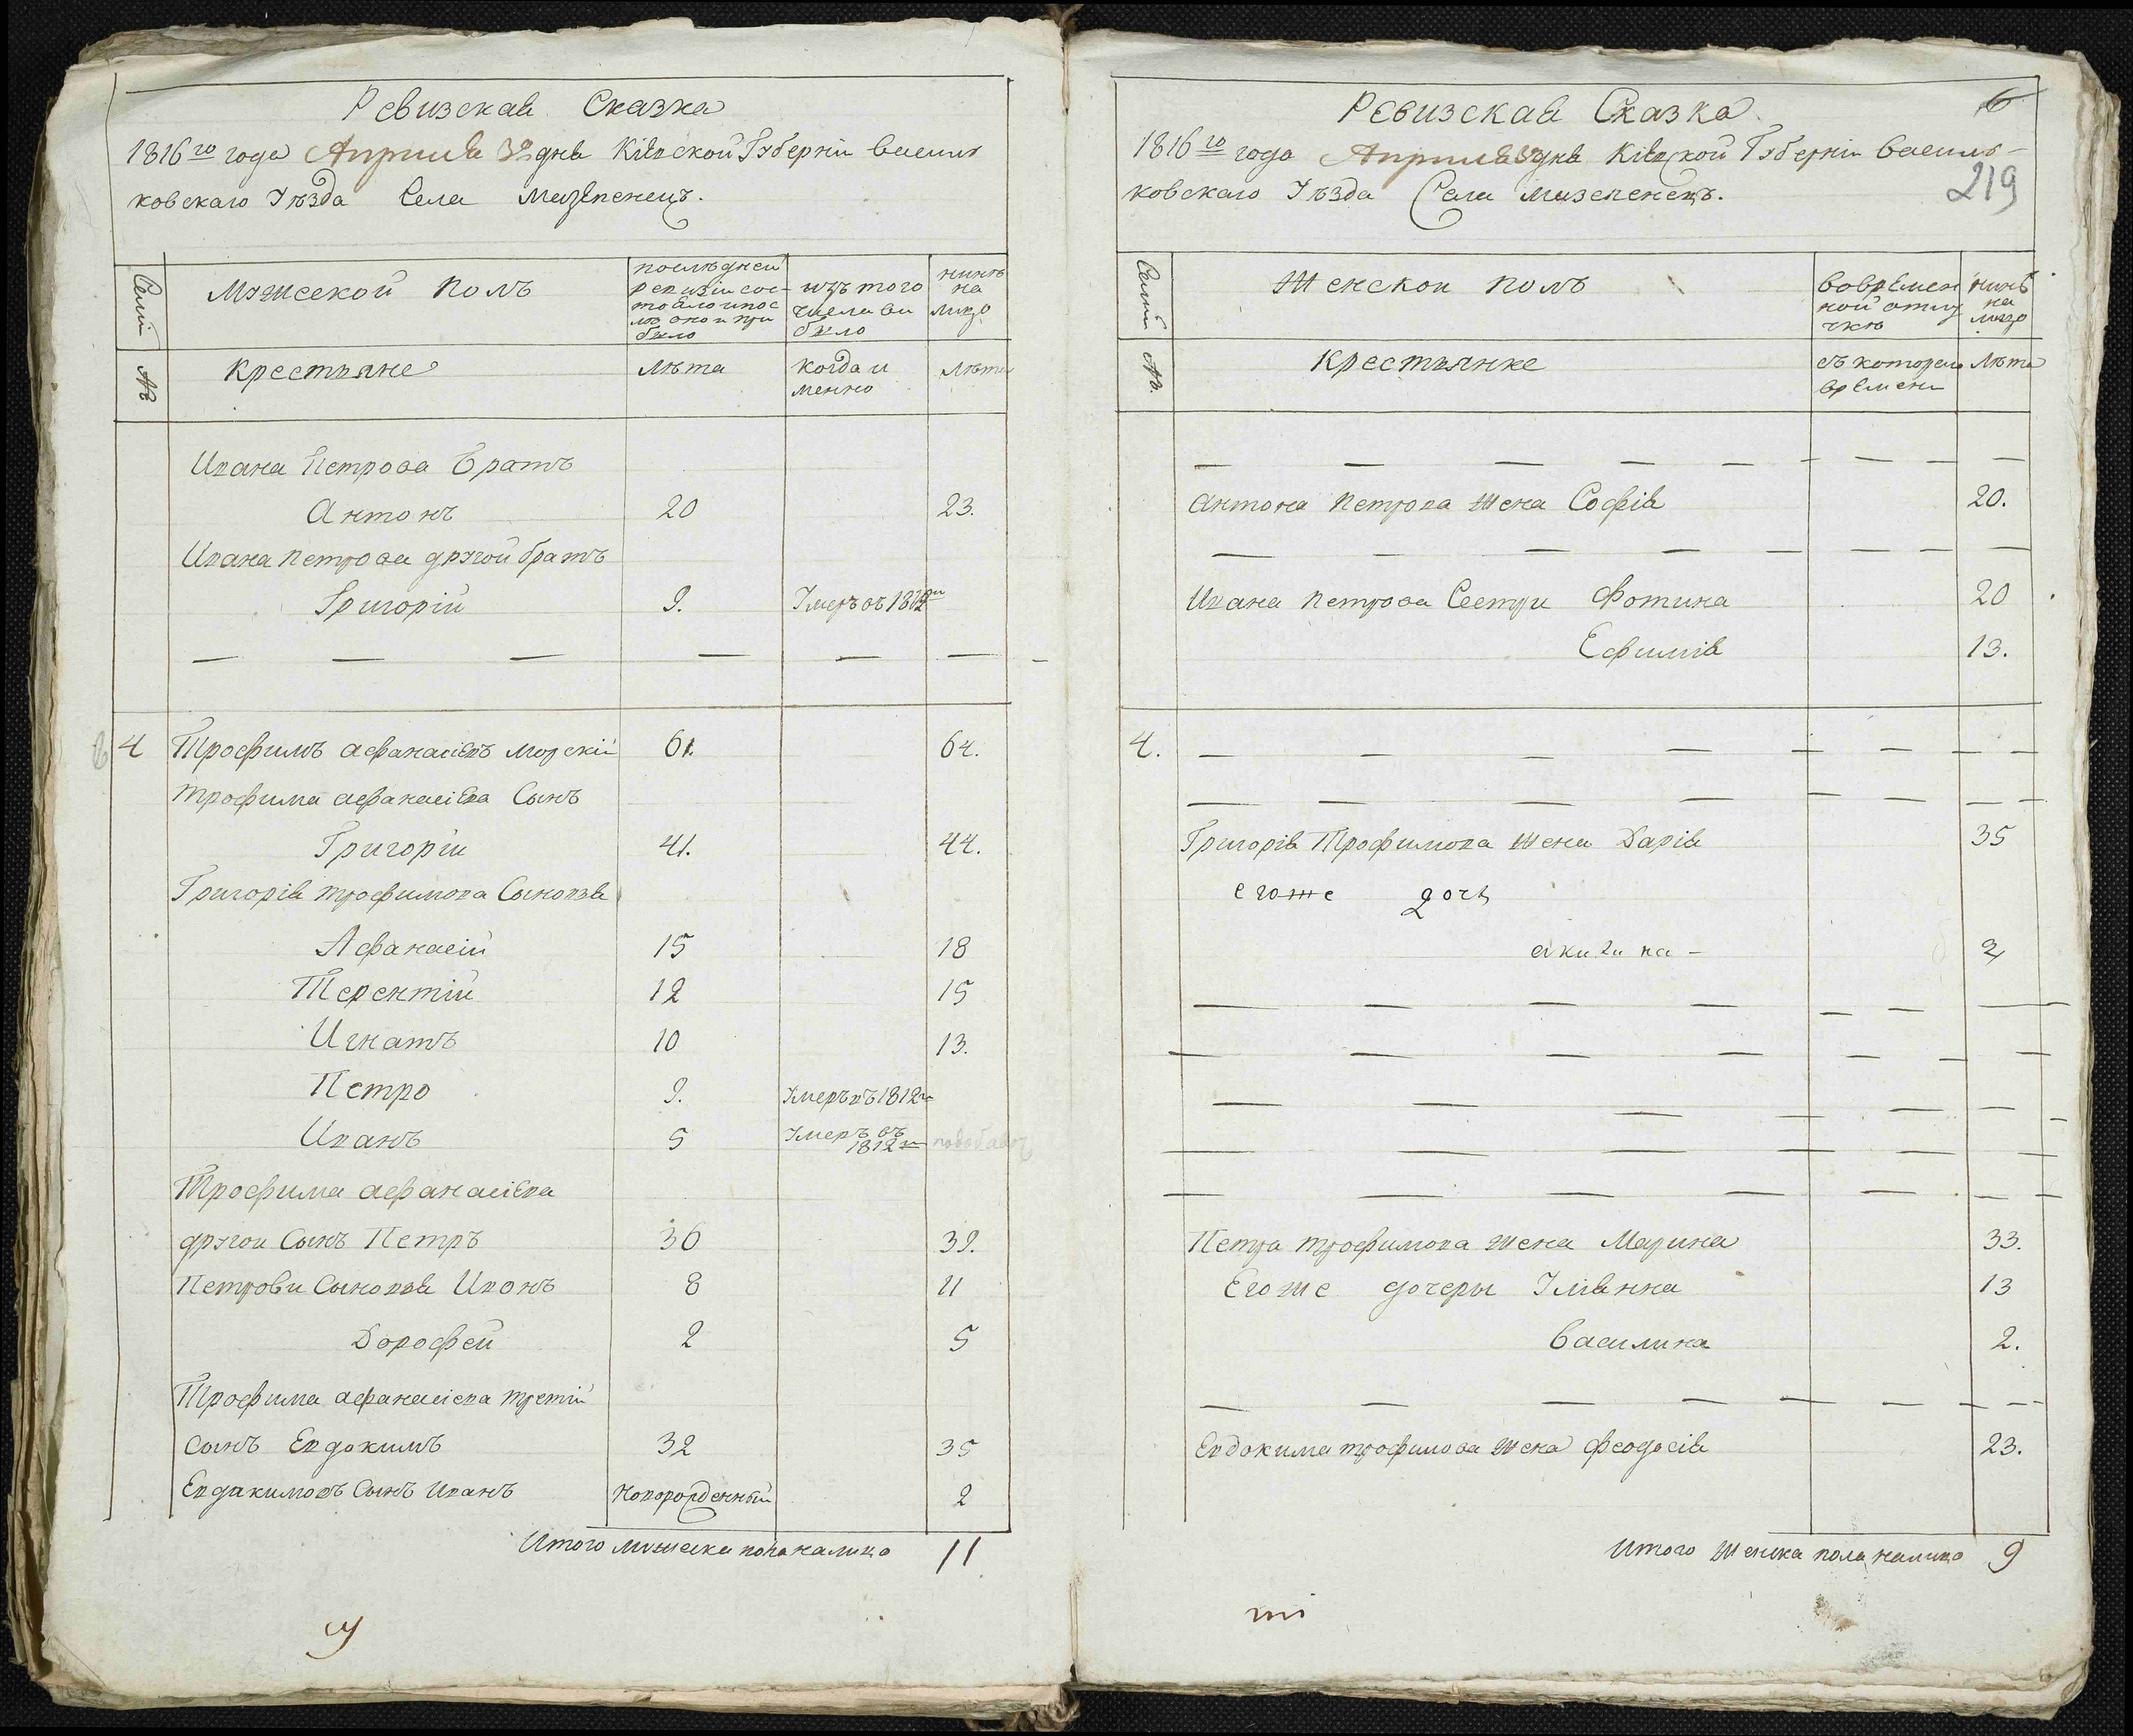 Ревизская Сказка
1816го года Априля 32 дня Кіевской Губерніи василь
ковскаго Уѣзда Села Мазепенецъ.
Семіи
Мужескои полъ
послѣдней
ревизіи сос-
тояло и пос
лѣ оно и при
было
изъ того
числа вы
было
нинѣ
на
лицо
№
крестьяне
лѣта
когда и
менно
лѣта
Ивана Петрова братъ
Антонъ 20 23.
Ивана петрова другой братъ
Григорій 9. Умеръ въ 1812м
4 Трофимъ афанасіевъ Морскій 61. 64.
трофима афанасіева Сынъ
Григоріи 41. 44.
Григорія трофимова Сыновья
Афанасій 15 18
Терентій 12 15
Игнатъ 10 13.
Петро 9. Умеръ въ 1812м
Иванъ 5 Умеръ въ
1812м
Трофима афанасіева
другои Сынъ Петръ 36 39.
Петрови Сыновья Иванъ 8 11
Дорофей 2 5
Трофима афанасіева третій
сынъ Евдокимъ 32 35
Евдакимовъ Сынъ Иванъ новорожденный 2
Итого мужеска пола налицо 11
Ревизская Сказка. 6
1816го года Априля 32 дня Кіевской Губерніи василь-
ковскаго Уѣзда Села мазепенецъ. 219
Семіи
Женскои полъ
во времен
ной отлу
чкѣ
нинѣ
на
лицо
№.
Крестьянке
съ котораго
времени
лѣта
Антона петрова жена Софія 20.
Ивана петрова Сестри Фотина 20
Ефимія 13.
4.
Григорія Трофимова жена Дарія 35
егоже дочь
акилина - 2
Петра трофимова жена Марина 33.
Егоже дочеры Уліянна 13
Василина 2.
Евдокима трофимова жена феодосія 23.
Итого женска пола налицо 9